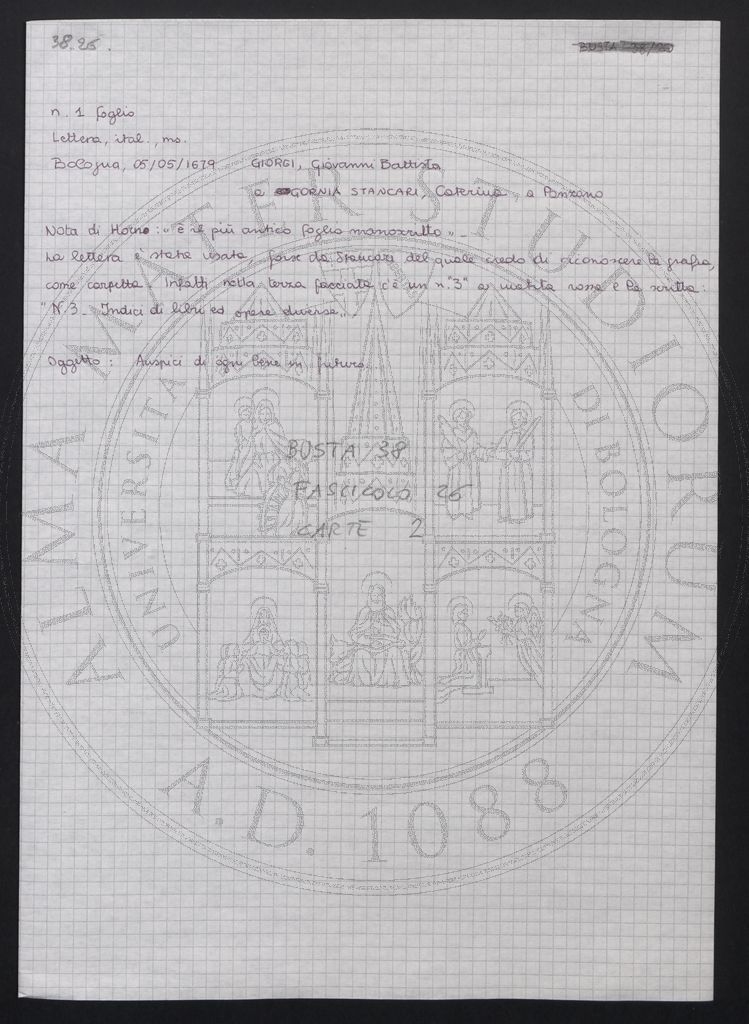 38.26.
BUSTA 38/26
n. 1 foglio
Lettera, ital., ms.
Bologna, 05/05/1679 GIORGI, Giovanni Battista
a GORNIA STANCARI, Caterina, a Panzano
Nota di Horn: "è il più antico foglio manoscritto".
La lettera è stata usata, forse da Stancari del quale credo di riconoscere la grafia,
come coperta. Infatti nella terza facciata c'è un n."3" a matita rossa e la scritta:
"N.3 - Indici di libri ed opere diverse".
Oggetto: Auspici di ogni bene in futuro.
BUSTA 38
FASCICOLO 26
CARTE 2
ALMA MATER STUDIORUM
UNIVERSITA DI BOLOGNA
A.D. 1088